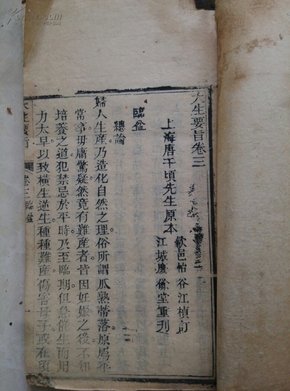 大生要旨卷三
上海唐千頃先生原本
歙邑怡谷江楨訂
江城廣餘堂重刊
臨盆
總論
婦人生產乃造化自然之理俗所謂瓜熟蒂落原爲平
常事毋庸驚疑然竟有難產者昔因妊娠之後不知
培養之道犯禁忌於平時乃至臨期但急催生而用
力太早以致橫生逆生種種難產傷害母子或在頃